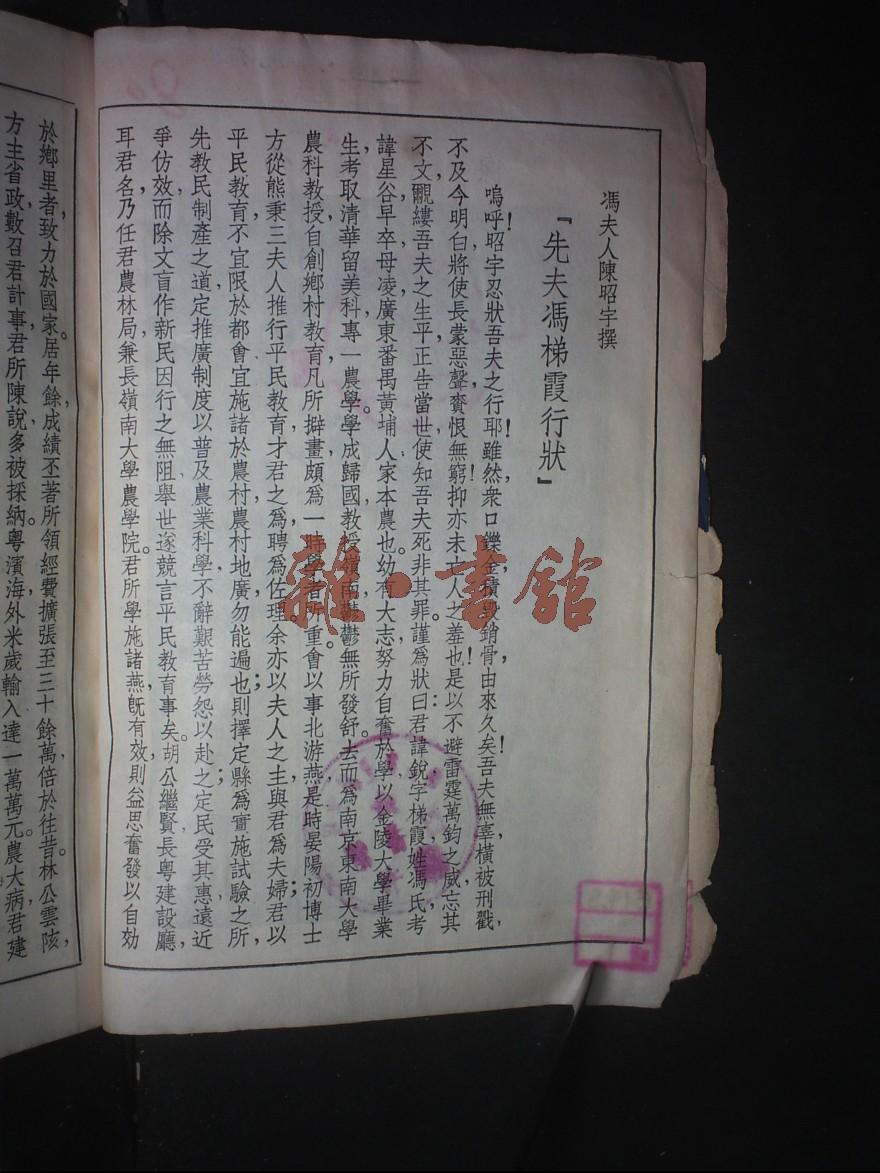 馮夫人陳昭宇撰
『先夫馮梯霞行狀』
嗚呼！昭宇忍狀吾夫之行耶！雖然，衆口鑠金，積毀銷骨，由來久矣！吾夫無辜，橫被刑戳，
不及今明白，將使長蒙惡聲，賷恨無窮！抑亦未亡人之羞也！是以不避雷霆萬鈞之威，忘其
不文，覼縷吾夫之生平，正告當世，使知吾夫死非其罪。謹爲狀曰：君諱銳，字梯霞，姓馮氏，考
諱星谷，早卒，母凌，廣東番禺黃埔人，家本農也。幼有大志，努力自奮於學，以金陵大學畢業
生考取清華留美科，專一農學。學成歸國，教授嶺南，鬱鬱無所發舒，去而爲南京東南大學
農科教授，自創鄉村教育，凡所擗畫，頗爲一時學者所重。會以事北游燕，是時晏陽初博士
方從熊秉三夫人推行平民教育，才君之爲，聘爲佐理。余亦以夫人之主，與君爲夫婦；君以
平民教育不宜限於都會，宜施諸於農村，農村地廣勿能遍也，則擇定縣爲實施試驗之所，
先教民制產之道，定推廣制度，以普及農業科學，不辭艱苦勞怨以赴之；定民受其惠，遠近
爭仿效，而除文盲作新民，因行之無阻，舉世遂競言平民教育事矣。胡公繼賢長粵建設廳，
耳君名，乃任君農林局兼長嶺南大學農學院。君所學施諸燕旣有效，則益思奮發以自効
於鄉里者致力於國家。居年餘，成績丕著，所領經費擴張至三十餘萬，倍於往昔。林公雲陔，
方主省政，數召君計事，君所陳說，多被採納。粵濱海，外米歲輸入達一萬萬元。農大病，君建
雜·書館